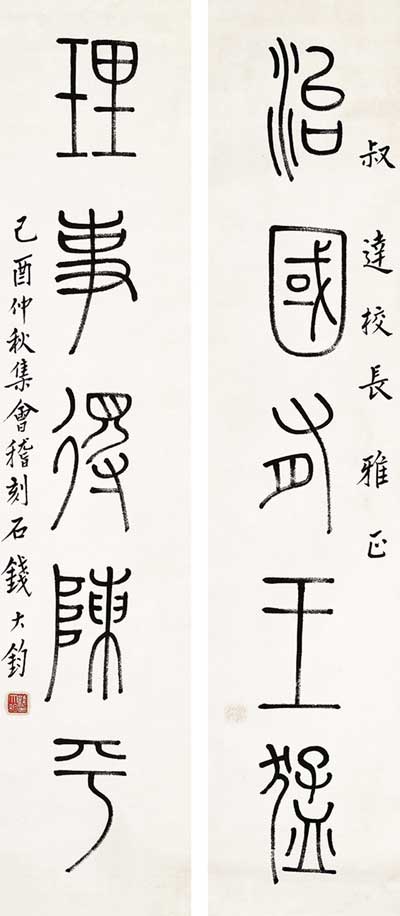 叔達校長雅正
治國有王猛
理事得陳平
己酉仲秋集會稽刻石錢大鈞